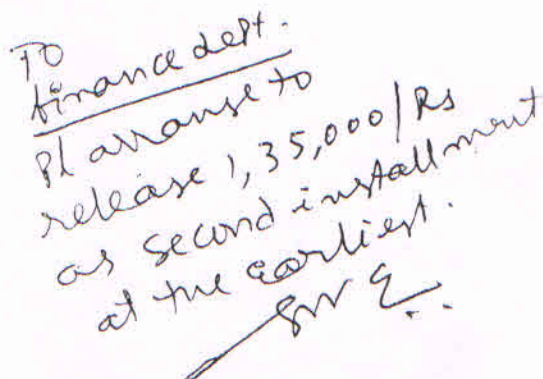 To
finance dept.
Pl arrange to
release 1,35,000/Rs
as second installment
at the earliest.